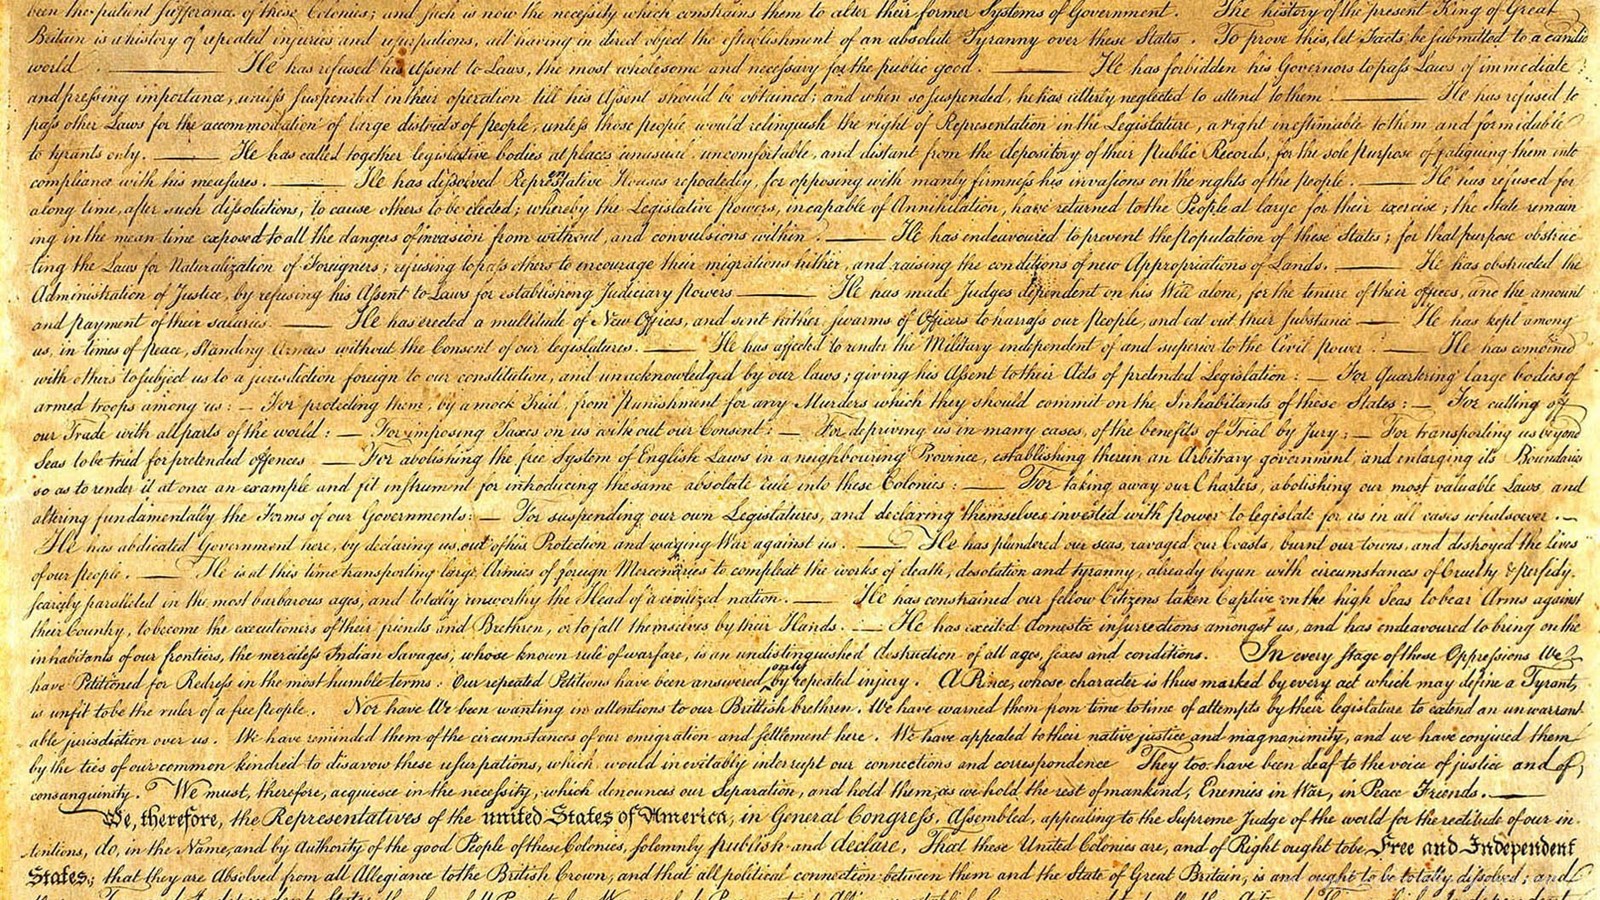 been the patient sufferance of these Colonies; and such is now the necessity which constrains them to alter their former Systems of Government. The history of the present King of Great
Britain is a history of repeated injuries and usurpations, all having in direct object the establishment of an absolute Tyranny over these States. To prove this, let Facts be submitted to a candid
world. — He has refused his Assent to Laws, the most wholesome and necessary for the public good. — He has forbidden his Governors to pass Laws of immediate
and pressing importance, unless suspended in their operation till his Assent should be obtained; and when so suspended, he has utterly neglected to attend to them. — He has refused to
pass other Laws for the accommodation of large districts of people, unless those people would relinquish the right of Representation in the Legislature, a right inestimable to them and formidable
to tyrants only. — He has called together legislative bodies at places unusual, uncomfortable, and distant from the depository of their public Records, for the sole purpose of fatiguing them into
compliance with his measures. — He has dissolved Representative Houses repeatedly, for opposing with manly firmness his invasions on the rights of the people. — He has refused for
a long time, after such dissolutions, to cause others to be elected; whereby the Legislative powers, incapable of Annihilation, have returned to the People at large for their exercise; the State remain
ing in the mean time exposed to all the dangers of invasion from without, and convulsions within. — He has endeavoured to prevent the population of these States; for that purpose obstruc
ting the Laws for Naturalization of Foreigners; refusing to pass others to encourage their migrations hither, and raising the conditions of new Appropriations of Lands. — He has obstructed the
Administration of Justice, by refusing his Assent to Laws for establishing Judiciary powers — He has made Judges dependent on his Will alone, for the tenure of their offices, and the amount
and payment of their salaries. — He has erected a multitude of New Offices, and sent hither swarms of Officers to harrass our people, and eat out their substance — He has kept among
us, in times of peace, Standing Armies without the Consent of our legislatures. — He has affected to render the Military independent of and superior to the Civil power. — He has combined
with others to subject us to a jurisdiction foreign to our constitution, and unacknowledged by our laws; giving his Assent to their Acts of pretended Legislation: — For Quartering large bodies of
armed troops among us: — For protecting them, by a mock Trial, from punishment for any Murders which they should commit on the Inhabitants of these States: — For cutting off
our Trade with all parts of the world: — For imposing Taxes on us without our Consent: — For depriving us in many cases, of the benefits of Trial by Jury: — For transporting us beyond
Seas to be tried for pretended offences. — For abolishing the free System of English Laws in a neighbouring Province, establishing therein an Arbitrary government, and enlarging its Boundaries
so as to render it at once an example and fit instrument for introducing the same absolute rule into these Colonies: — For taking away our Charters, abolishing our most valuable Laws, and
altering fundamentally the Forms of our Governments: — For suspending our own Legislatures, and declaring themselves invested with power to legislate for us in all cases whatsoever. —
He has abdicated Government here, by declaring us out of his Protection and waging War against us. — He has plundered our seas, ravaged our Coasts, burnt our towns, and destroyed the lives
of our people. — He is at this time transporting large Armies of foreign Mercenaries to compleat the works of death, desolation and tyranny, already begun with circumstances of Cruelty & perfidy
scarcely paralleled in the most barbarous ages, and totally unworthy the Head of a civilized nation. — He has constrained our fellow Citizens taken Captive on the high Seas to bear Arms against
their Country, to become the executioners of their friends and Brethren, or to fall themselves by their Hands. — He has excited domestic insurrections amongst us, and has endeavoured to bring on the
inhabitants of our frontiers, the merciless Indian Savages, whose known rule of warfare, is an undistinguished destruction of all ages, sexes and conditions. In every stage of these Oppressions We
have Petitioned for Redress in the most humble terms: Our repeated Petitions have been answered only by repeated injury. A Prince, whose character is thus marked by every act which may define a Tyrant,
is unfit to be the ruler of a free people. Nor have We been wanting in attentions to our Brittish brethren. We have warned them from time to time of attempts by their legislature to extend an unwarrant
able jurisdiction over us. We have reminded them of the circumstances of our emigration and settlement here. We have appealed to their native justice and magnanimity, and we have conjured them
by the ties of our common kindred to disavow these usurpations, which would inevitably interrupt our connections and correspondence They too have been deaf to the voice of justice and of
consanguinity. We must, therefore, acquiesce in the necessity, which denounces our Separation, and hold them, as we hold the rest of mankind, Enemies in War, in Peace Friends. —
We, therefore, the Representatives of the united States of America, in General Congress, Assembled, appealing to the Supreme Judge of the world for the rectitude of our in
tentions, do, in the Name, and by Authority of the good People of these Colonies, solemnly publish and declare, That these United Colonies are, and of Right ought to be Free and Independent
States; that they are Absolved from all Allegiance to the British Crown, and that all political connection between them and the State of Great Britain, is and ought to be totally dissolved; and